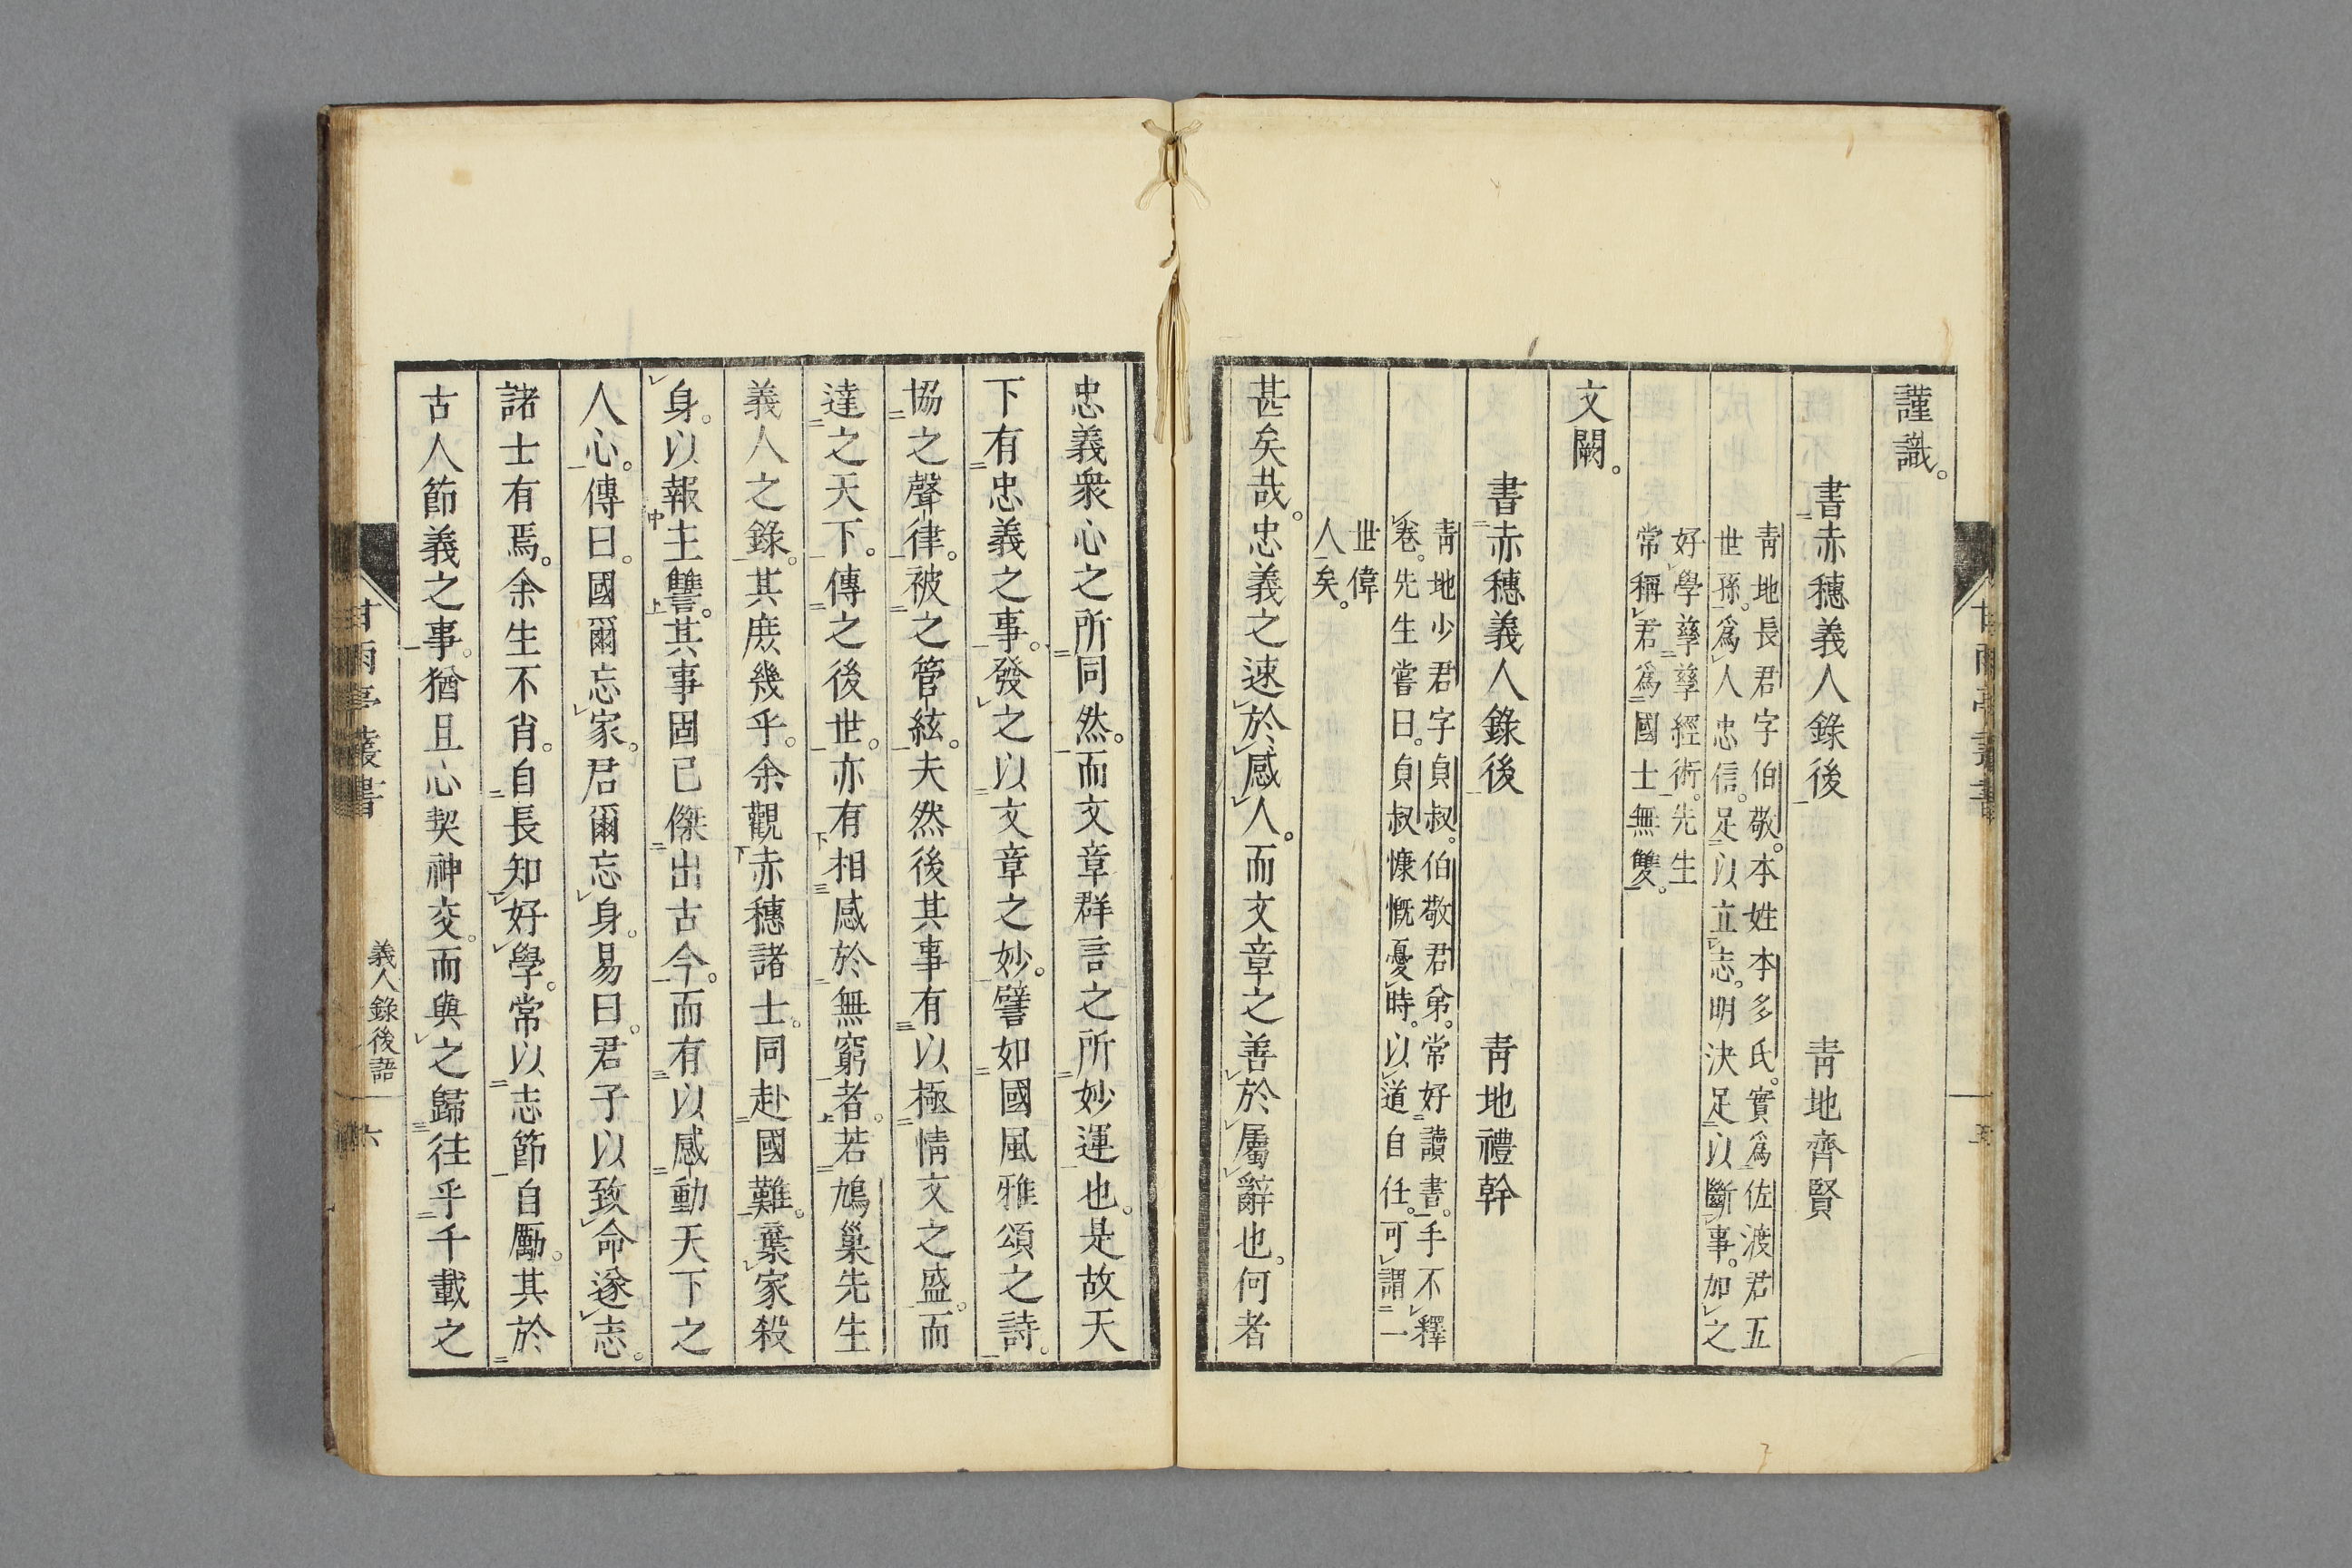 謹識。
書赤穗義人錄後　青地齊賢
青地長君字伯敬。本姓本多氏。實爲佐渡君五
世孫。爲人忠信。足以立志。明決足以斷事。加之
好學孳孳經術。先生
常稱君爲國士無雙。
文闕。
書赤穗義人錄後　青地禮幹
青地少君字貞叔。伯敬君弟。常好讀書。手不釋
卷。先生嘗曰。貞叔慷慨憂時。以道自任。可謂一
世偉
人矣。
甚矣哉。忠義之速於感人。而文章之善於屬辭也。何者
忠義衆心之所同然。而文章群言之所妙運也。是故天
下有忠義之事。發之以文章之妙。譬如國風雅頌之詩。
協之聲律。被之管絃。夫然後其事有以極情文之盛。而
達之天下。傳之後世。亦有相感於無窮者。若鳩巢先生
義人之錄。其庶幾乎。余觀赤穗諸士。同赴國難。棄家殺
身。以報主讐。其事固已傑出古今。而有以感動天下之
人心。傳曰。國爾忘家。君爾忘身。易曰。君子以致命遂志。
諸士有焉。余生不肖。自長知好學。常以志節自勵。其於
古人節義之事。猶且心契神交。而與之歸往乎千載之
甘雨亭叢書
義人錄後語
六